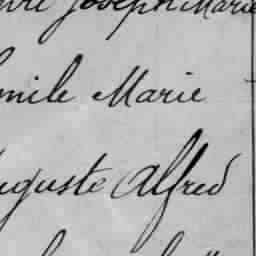 Joseph Marie
mile Marie
uguste Alfred